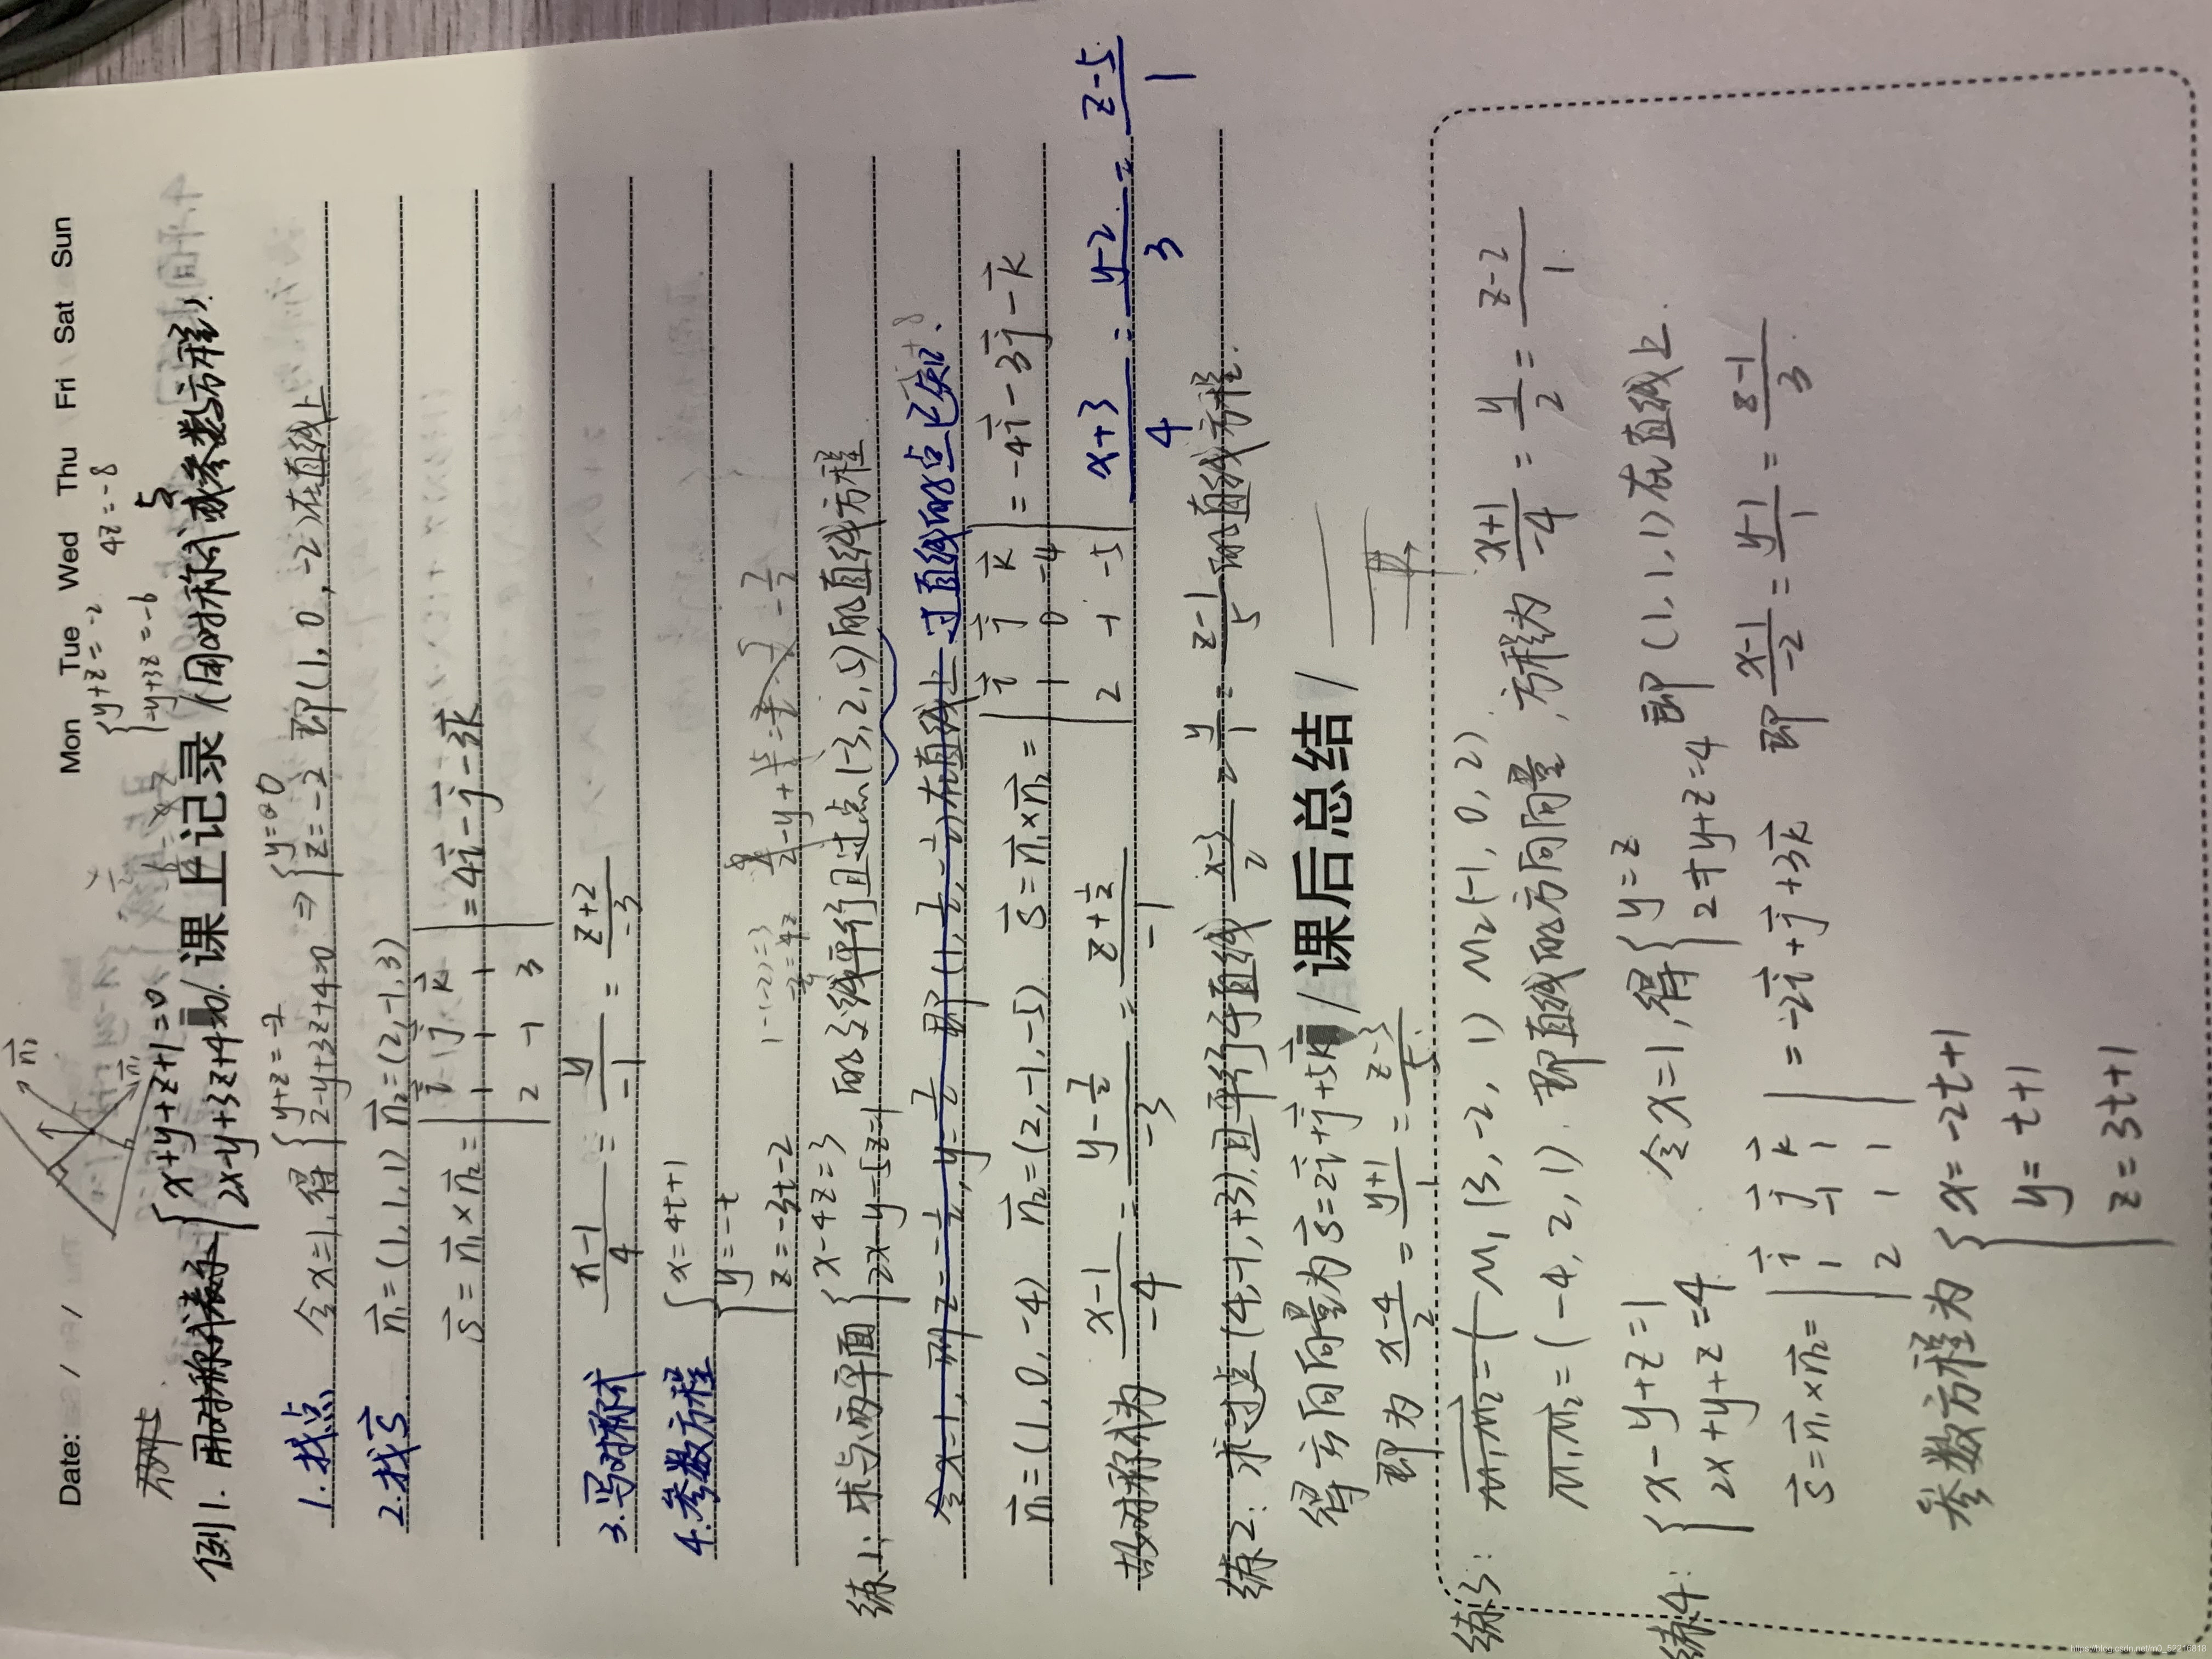 Date: / /
Mon Tue Wed Thu Fri Sat Sun
{y+z=-2
-y+3z=-6
4z=-8
n₁
例1. 用对称式表示 {x+y+z+1=0
2x-y+3z+4=0.
课上记录
(用对称式或参数方程)
1.找点 令x=1,得 {y+z=-2
2-y+3z+4=0 ⇒ {y=0
z=-2 即(1,0,-2)在直线上
2.找s n₁=(1,1,1) n₂=(2,-1,3)
s=n₁×n₂=| i j k
1 1 1
2 -1 3 | =4i-j-3k
3.写对称式 (x-1)/4 = y/-1 = (z+2)/-3
4.参数方程 {x=4t+1
y=-t
z=-3t-2
练1: 求与两平面 {x-4z=3
2x-y-5z=1 的交线平行且过点(-3,2,5)的直线方程
令x=1,则z=-1/2,y=3/2 即(1,3/2,-1/2)在直线上 过直线的点已知.
n₁=(1,0,-4) n₂=(2,-1,-5) s=n₁×n₂=| i j k
1 0 -4
2 -1 -5 | =-4i-3j-k
故对称式为 (x-1)/-4 = (y-3/2)/-3 = (z+1/2)/-1
(x+3)/4 = (y-2)/3 = (z-5)/1
练2: 求过点(4,-1,+3)且平行于直线 (x-3)/2 = y/1 = (z-1)/5 的直线方程.
得方向向量为s=2i+j+5k
/ 课后总结 /
即为 (x-4)/2 = (y+1)/1 = (z-3)/5
练3: M₁M₂=( M₁(3,-2,1) M₂(-1,0,2)
M₁M₂=(-4,2,1). 即直线的方向向量,方程为 (x+1)/-4 = y/2 = (z-2)/1
练4: {x-y+z=1
2x+y+z=4 令x=1,得 {y=z
2+y+z=4 即(1,1,1)在直线上.
s=n₁×n₂=| i j k
1 -1 1
2 1 1 | =-2i+j+3k 即 (x-1)/-2 = (y-1)/1 = (z-1)/3
参数方程为 {x=-2t+1
y=t+1
z=3t+1
https://blog.csdn.net/m0_52215818